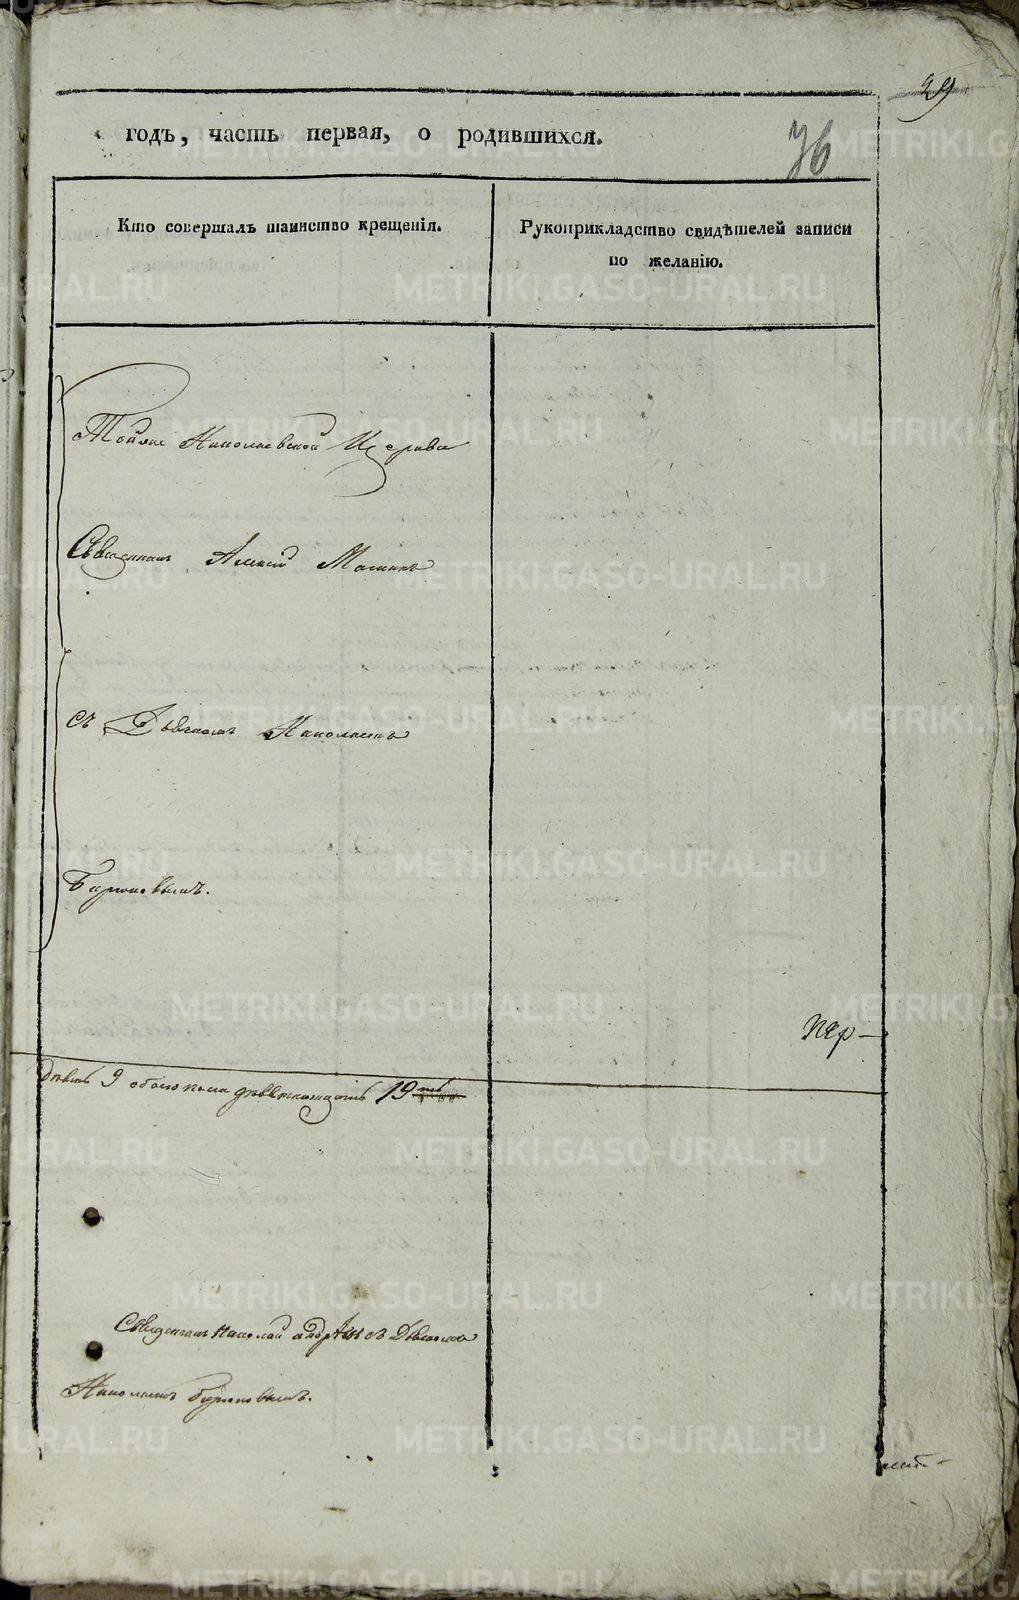 29
годъ, часть первая, о родившихся.
76
Кто совершалъ таинство крещенія.
Рукоприкладство свидѣтелей записи
по желанію.
Тойже Николаевской Церкви
Священникъ Алексій
съ Діакономъ Николаемъ
Пер-
9 обоего пола девятнадцать 19
Священникъ Николай съ Діакономъ
Николаемъ
METRIKI.GASO-URAL.RU